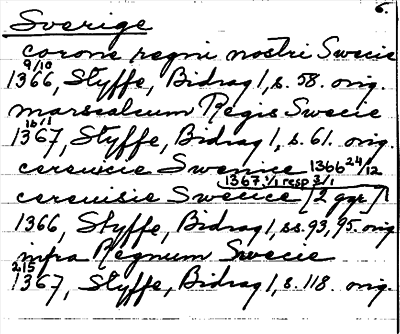 6.
Sverige
corone regni nostri Swecie
9/10
1366, Styffe, Bidrag 1, s. 58. orig.
marscalcum Regis Swecie
16/1
1367, Styffe, Bidrag 1, s. 61. orig.
cerewcie Swenice 1366 24/12
1367 1/1 resp 3/1
cereuisie Swecice [2 ggr]
1366, Styffe, Bidrag 1, ss. 93, 95. orig
infra Regnum Swecie
2/5
1367, Styffe, Bidrag 1, s. 118. orig.